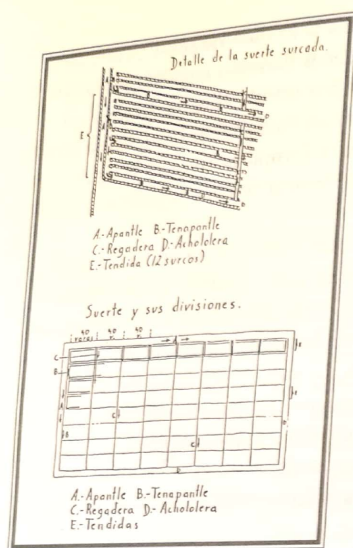 Detalle de la suerte surcada.
E.-
A.-Apantle B-Tenapantle
C.-Regadera D.-Achololera
E.-Tendida (12 surcos)
Suerte y sus divisiones.
40 40 40
varas v. v.
A
C
B
A
B
C
C
D
D
A.-Apantle B.-Tenapantle
C.-Regadera D.-Achololera
E.-Tendidas